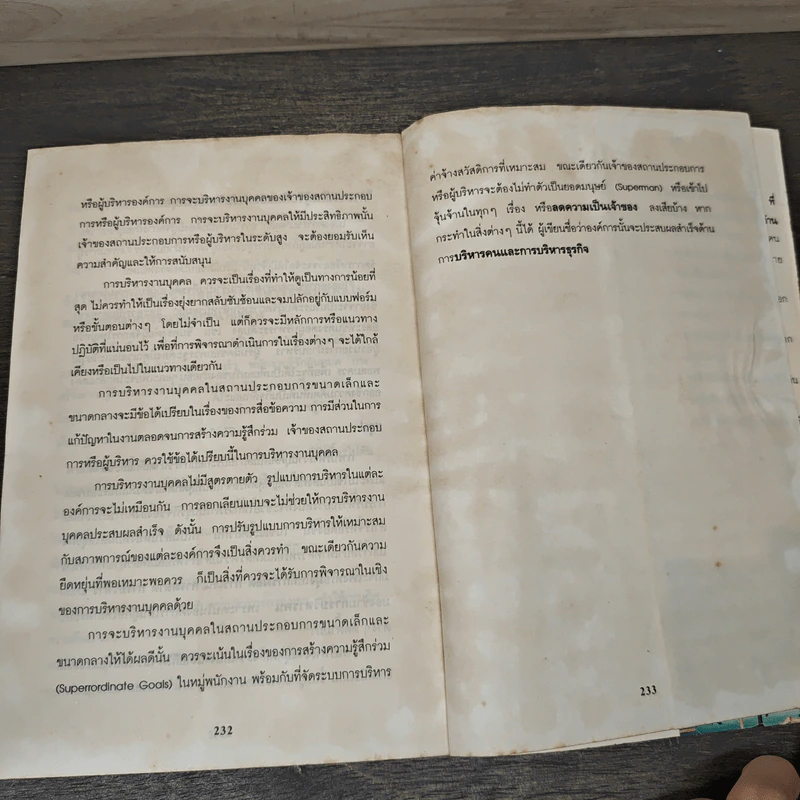 หรือผู้บริหารองค์การ การจะบริหารงานบุคคลของเจ้าของสถานประกอบ
การหรือผู้บริหารองค์การ การจะบริหารงานบุคคลให้มีประสิทธิภาพนั้น
เจ้าของสถานประกอบการหรือผู้บริหารในระดับสูง จะต้องยอมรับเห็น
ความสำคัญและให้การสนับสนุน
การบริหารงานบุคคล ควรจะเป็นเรื่องที่ทำให้ดูเป็นทางการน้อยที่
สุด ไม่ควรทำให้เป็นเรื่องยุ่งยากสลับซับซ้อนและจมปลักอยู่กับแบบฟอร์ม
หรือขั้นตอนต่างๆ โดยไม่จำเป็น แต่ก็ควรจะมีหลักการหรือแนวทาง
ปฏิบัติที่แน่นอนไว้ เพื่อที่การพิจารณาดำเนินการในเรื่องต่างๆ จะได้ใกล้
เคียงหรือเป็นไปในแนวทางเดียวกัน
การบริหารงานบุคคลในสถานประกอบการขนาดเล็กและ
ขนาดกลางจะมีข้อได้เปรียบในเรื่องของการสื่อข้อความ การมีส่วนในการ
แก้ปัญหาในงานตลอดจนการสร้างความรู้สึกร่วม เจ้าของสถานประกอบ
การหรือผู้บริหาร ควรใช้ข้อได้เปรียบนี้ในการบริหารงานบุคคล
การบริหารงานบุคคลไม่มีสูตรตายตัว รูปแบบการบริหารในแต่ละ
องค์การจะไม่เหมือนกัน การลอกเลียนแบบจะไม่ช่วยให้การบริหารงาน
บุคคลประสบผลสำเร็จ ดังนั้น การปรับรูปแบบการบริหารให้เหมาะสม
กับสภาพการณ์ของแต่ละองค์การจึงเป็นสิ่งควรทำ ขณะเดียวกันความ
ยืดหยุ่นที่พอเหมาะพอควร ก็เป็นสิ่งที่ควรจะได้รับการพิจารณาในเชิง
ของการบริหารงานบุคคลด้วย
การจะบริหารงานบุคคลในสถานประกอบการขนาดเล็กและ
ขนาดกลางให้ได้ผลดีนั้น ควรจะเน้นในเรื่องของการสร้างความรู้สึกร่วม
(Superrordinate Goals) ในหมู่พนักงาน พร้อมกับที่จัดระบบการบริหาร
232
ค่าจ้างสวัสดิการที่เหมาะสม ขณะเดียวกันเจ้าของสถานประกอบการ
หรือผู้บริหารจะต้องไม่ทำตัวเป็นยอดมนุษย์ (Superman) หรือเข้าไป
จุ้นจ้านในทุกๆ เรื่อง หรือลดความเป็นเจ้าของ ลงเสียบ้าง หาก
กระทำในสิ่งต่างๆ นี้ได้ ผู้เขียนเชื่อว่าองค์การนั้นจะประสบผลสำเร็จด้าน
การบริหารคนและการบริหารธุรกิจ
233